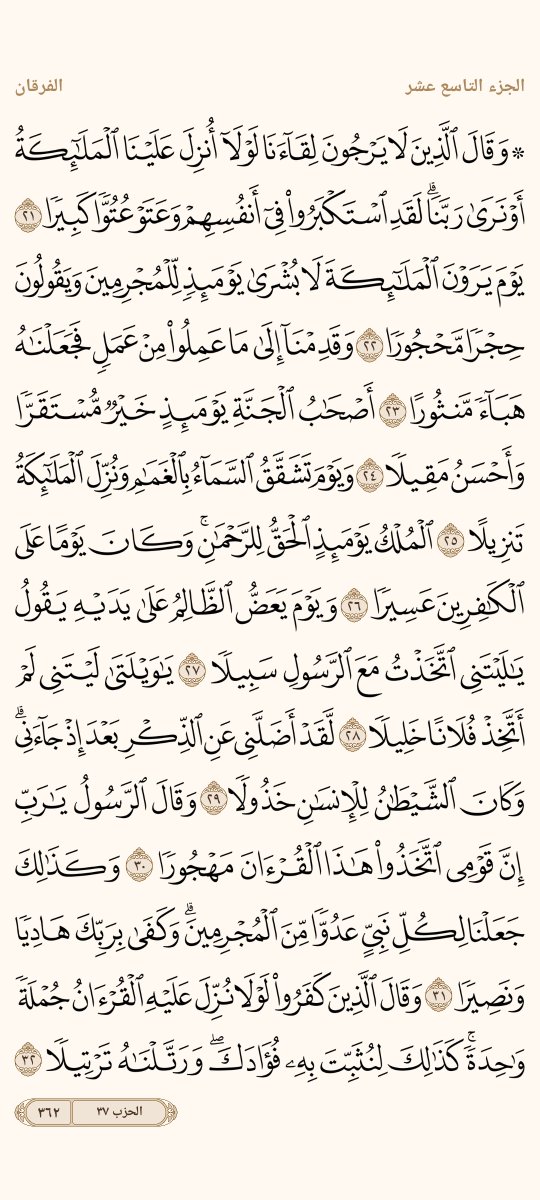 الجزء التاسع عشر
الفرقان
۞ وَقَالَ ٱلَّذِينَ لَا يَرْجُونَ لِقَآءَنَا لَوْلَآ أُنزِلَ عَلَيْنَا ٱلْمَلَـٰٓئِكَةُ
أَوْ نَرَىٰ رَبَّنَا ۗ لَقَدِ ٱسْتَكْبَرُوا۟ فِىٓ أَنفُسِهِمْ وَعَتَوْ عُتُوًّا كَبِيرًا ٢١
يَوْمَ يَرَوْنَ ٱلْمَلَـٰٓئِكَةَ لَا بُشْرَىٰ يَوْمَئِذٍ لِّلْمُجْرِمِينَ وَيَقُولُونَ
حِجْرًا مَّحْجُورًا ٢٢ وَقَدِمْنَآ إِلَىٰ مَا عَمِلُوا۟ مِنْ عَمَلٍ فَجَعَلْنَـٰهُ
هَبَآءً مَّنثُورًا ٢٣ أَصْحَـٰبُ ٱلْجَنَّةِ يَوْمَئِذٍ خَيْرٌ مُّسْتَقَرًّا
وَأَحْسَنُ مَقِيلًا ٢٤ وَيَوْمَ تَشَقَّقُ ٱلسَّمَآءُ بِٱلْغَمَـٰمِ وَنُزِّلَ ٱلْمَلَـٰٓئِكَةُ
تَنزِيلًا ٢٥ ٱلْمُلْكُ يَوْمَئِذٍ ٱلْحَقُّ لِلرَّحْمَـٰنِ ۚ وَكَانَ يَوْمًا عَلَى
ٱلْكَـٰفِرِينَ عَسِيرًا ٢٦ وَيَوْمَ يَعَضُّ ٱلظَّالِمُ عَلَىٰ يَدَيْهِ يَقُولُ
يَـٰلَيْتَنِى ٱتَّخَذْتُ مَعَ ٱلرَّسُولِ سَبِيلًا ٢٧ يَـٰوَيْلَتَىٰ لَيْتَنِى لَمْ
أَتَّخِذْ فُلَانًا خَلِيلًا ٢٨ لَّقَدْ أَضَلَّنِى عَنِ ٱلذِّكْرِ بَعْدَ إِذْ جَآءَنِى ۗ
وَكَانَ ٱلشَّيْطَـٰنُ لِلْإِنسَـٰنِ خَذُولًا ٢٩ وَقَالَ ٱلرَّسُولُ يَـٰرَبِّ
إِنَّ قَوْمِى ٱتَّخَذُوا۟ هَـٰذَا ٱلْقُرْءَانَ مَهْجُورًا ٣٠ وَكَذَٰلِكَ
جَعَلْنَا لِكُلِّ نَبِىٍّ عَدُوًّا مِّنَ ٱلْمُجْرِمِينَ ۗ وَكَفَىٰ بِرَبِّكَ هَادِيًا
وَنَصِيرًا ٣١ وَقَالَ ٱلَّذِينَ كَفَرُوا۟ لَوْلَا نُزِّلَ عَلَيْهِ ٱلْقُرْءَانُ جُمْلَةً
وَٰحِدَةً ۚ كَذَٰلِكَ لِنُثَبِّتَ بِهِۦ فُؤَادَكَ ۖ وَرَتَّلْنَـٰهُ تَرْتِيلًا ٣٢
الحزب ٣٧
٣٦٢